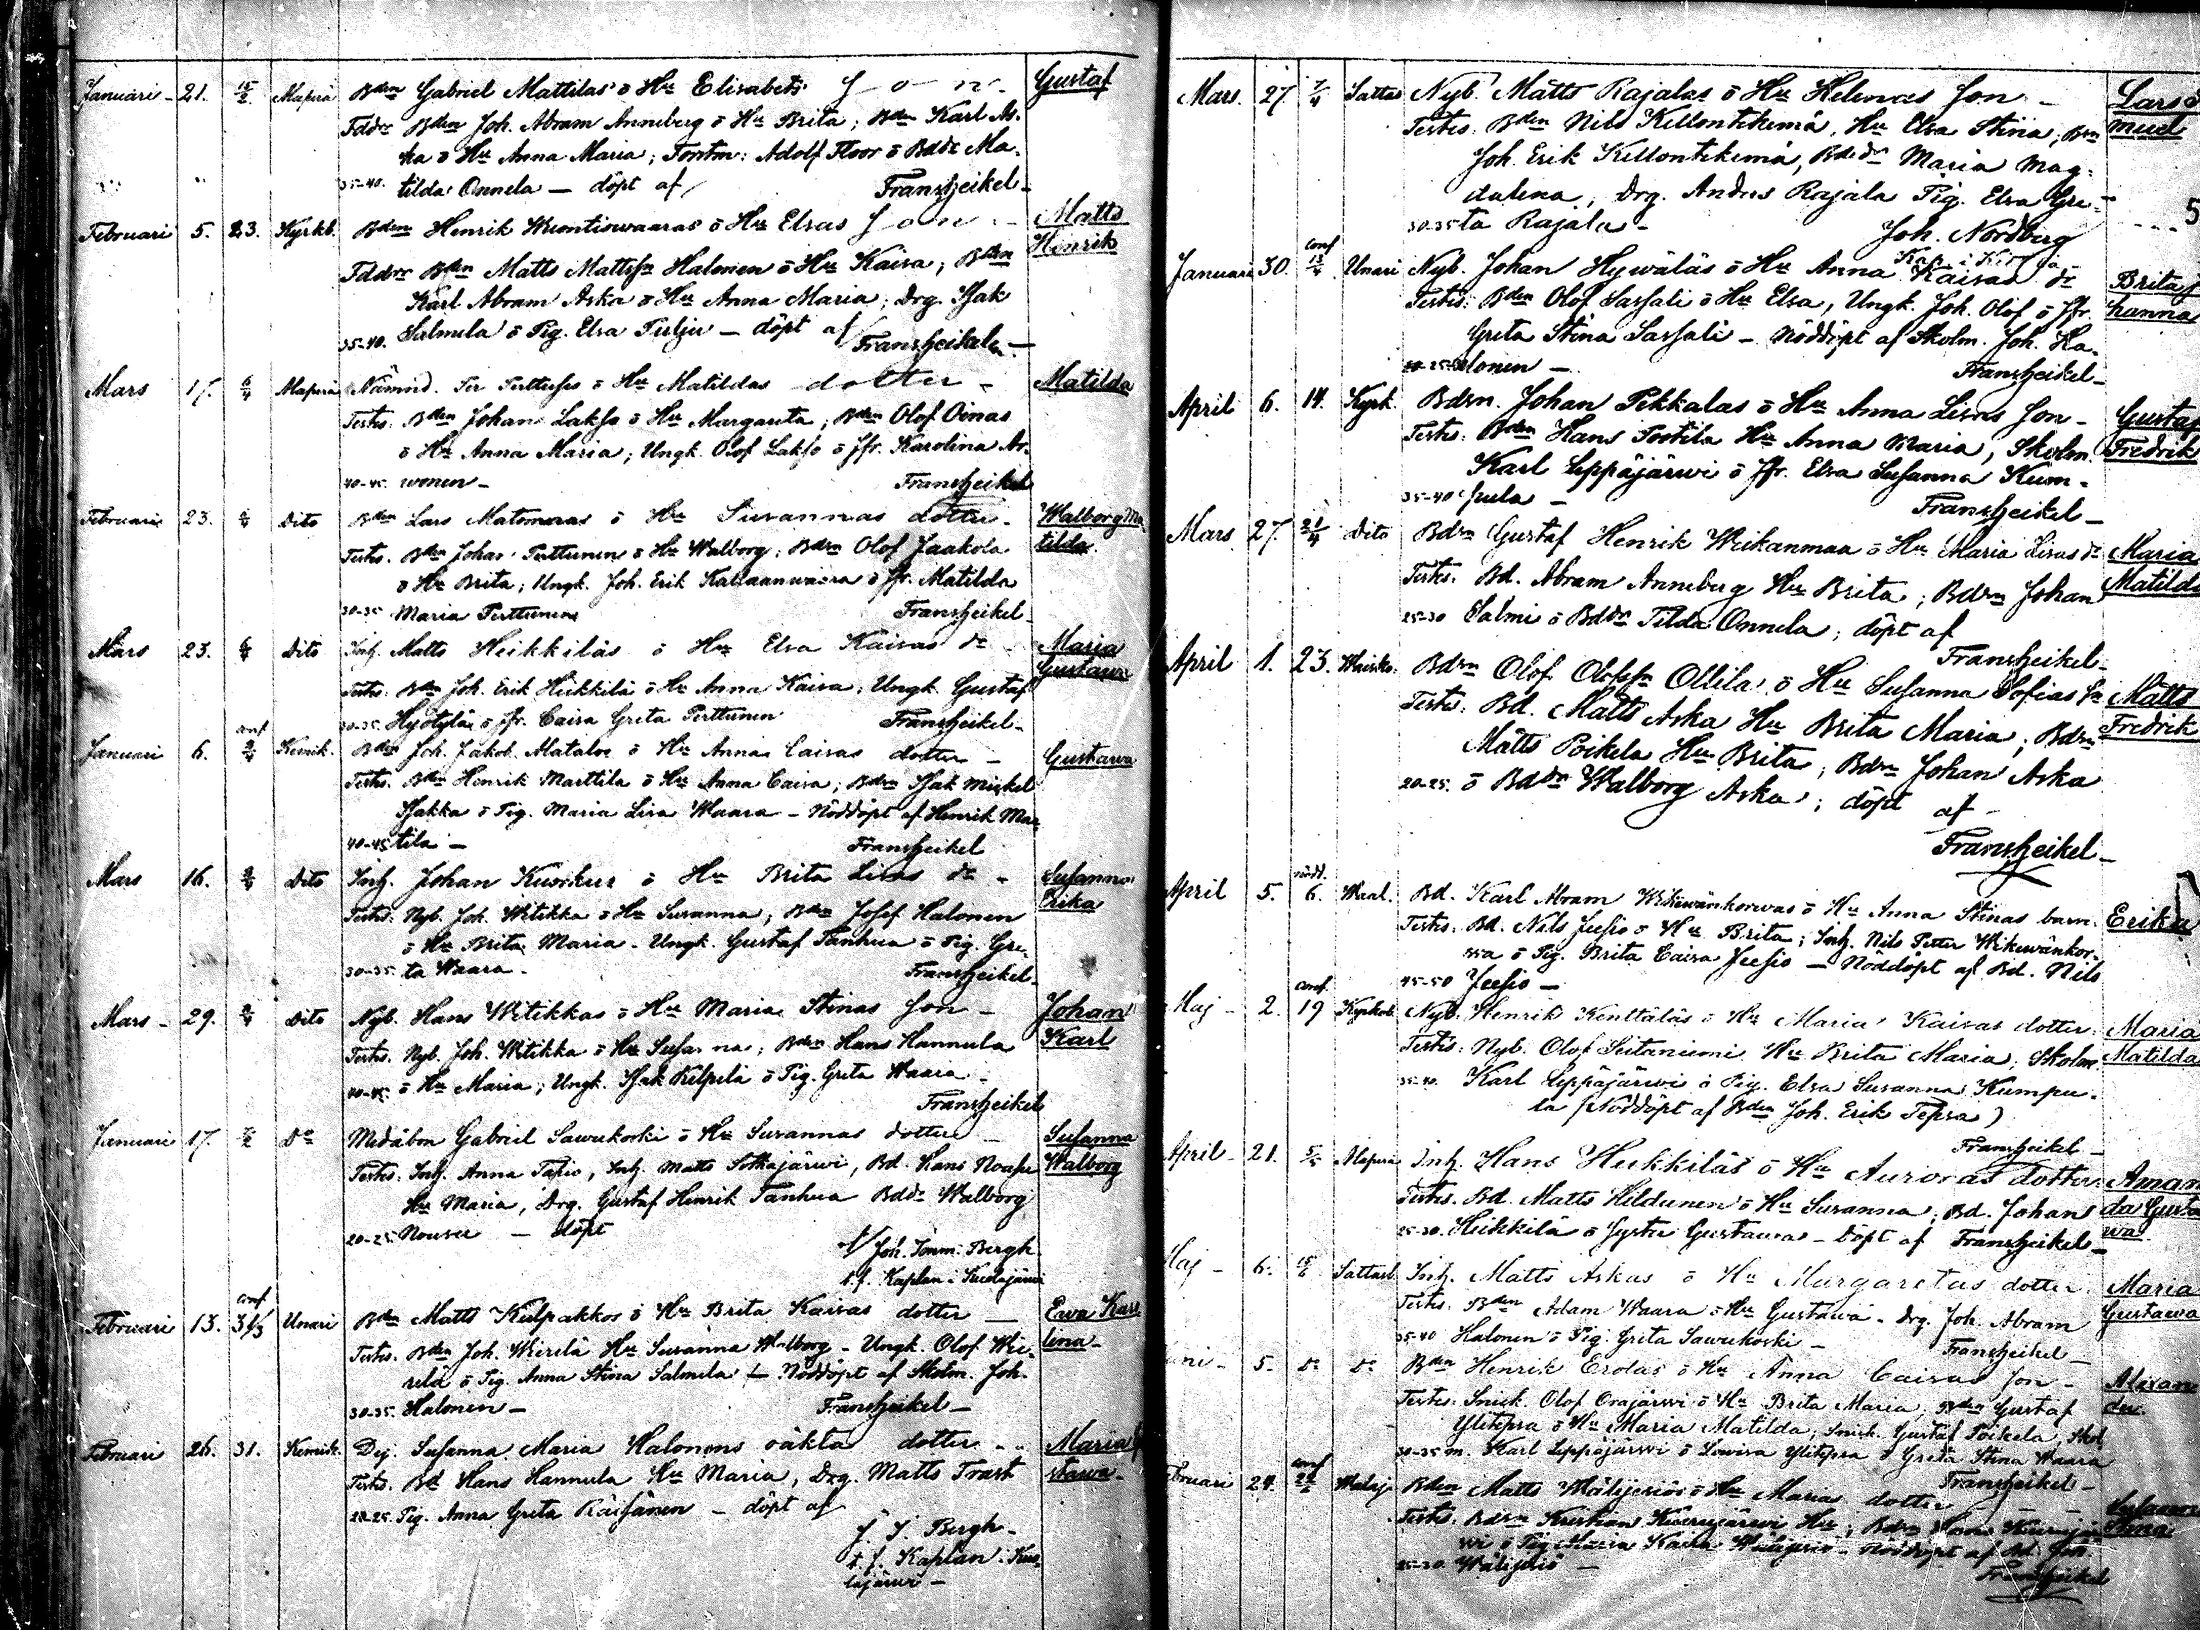 Januari - 21. 15/2. Alaperä Bdn Gabriel Mattilas o Hu Elisabets Son - Gustaf
Fddr Bden Joh. Abram Anneberg o Hu Brita; Bden Karl As-
ka o Hu Anna Maria; Adolf Floor o Bdds Ma-
35-40. tilda Onnela — döpt af Franz Heikel -
Februari 5. 23. Kyrkb. Bden Henrik Wuontiswaaras o Hu Elsas Son - Matts
Henrik
Fddr Bden Matts Mattsson Halonen o Hu Kaisa; Bden
Karl Abram Aska o Hu Anna Maria; Drg. Isak
35-40. Salmela o Pig. Elsa — döpt af Franz Heikel —
Mars 17. 6/4 Alaperä Nämnd. Per Perttuses o Hu Matildas dotter - Matilda
Testes. Bden Johan Lakso o Hu Margareta; Bden Olof Oinas
o Hu Anna Maria; Ungk. Olof Lakso o Jfr. Karolina Ar-
40-45 wonen - Franz Heikel
Februari 23. 6/4 Dito Bden Lars Matomeras o Hu Susannas dotter - Walborg Ma-
tilda
Testes. Bden Johan Perttunen o Hu Walborg; Bden Olof Jaakola
o Hu Brita; Ungk. Joh. Erik o Jfr. Matilda
30-35 Maria Perttunen Franz Heikel -
Mars 23. 6/4 Dito Inh. Matts Heikkiläs o Hu Elsa Kaisas dr Maria
Gustawa
Testes. Bden Joh. Erik Heikkilä o Hu Anna Kaisa, Ungk. Gustaf
30-35. Hyötylä o Jfr. Caisa Greta Perttunen Franz Heikel -
conf
Januari 6. 9/4 Kemik. Bden Joh. Jakob Matalas o Hu Anna Caisas dotter - Gustawa
Testes. Bden Henrik Marttila o Hu Anna Caisa; Bden Isak Mickel
Isakka o Pig. Maria Lisa Waara - Nöddöpt af Henrik Mar-
40-45 tila — Franz Heikel
Mars 16. 9/4 Dito Inh. Johan Kuorkus o Hu Brita Lisas dr - Susanna
Erika
Testes. Nyb. Joh. Witikka o Hu Susanna; Bden Josef Halonen
o Hu Brita Maria - Ungk. Gustaf Tanhua o Pig. Gre-
30-35 ta Waara - Franz Heikel -
Mars - 29. 9/4 Dito Nyb. Hans Witikkas o Hu Maria Stinas Son - Johan
Karl
Testes. Nyb. Joh. Witikka o Hu Susanna; Bden Hans Hannula
40-45 o Hu Maria; Ungk. Isak Kilpelä o Pig. Greta Waara -
Franz Heikel
Januari 17. Do Gabriel Sawukoski o Hu Susannas dotter - Susanna
Walborg
Testes: Inh. Anna Tapio, Inh. Matts Sotkajärwi, Bd. Hans
Hu Maria, Drg. Gustaf Henrik Tanhua Bddr Walborg
20-25 Nousu — döpt
af Joh. Imm. Bergh
t.f. Kaplan i Kuolajärwi
conf
Februari 13. 31/3 Unari Bden Matts Kulpakkos o Hu Brita Kaisas dotter — Ewa Karo-
lina -
Testes. Bden Joh. Wierelä Hu Susanna Walborg - Ungk. Olof Wie-
relä o Pig. Anna Stina Salmela — Nöddöpt af Skolm. Joh.
30-35 Halonen — Franz Heikel —
Februari 26. 31. Kemik. Dej. Susanna Maria Halonens oäkta dotter - Maria
Testes. Bd Hans Hannula Hu Maria, Drg. Matts Trast
20-25 Pig. Anna Greta Räisänen - döpt af
J. I. Bergh -
t.f. Kaplan i Kuo-
lajärwi —
Mars. 27. 7/4 Sattas Nyb. Matts Rajalas o Hu Helenas Son - Lars
Testes. Bden Nils Kellontekemä, Hu Elsa Stina; Bdn
Joh. Erik Kellontekemä, Bddr Maria Mag-
dalena, Drg. Anders Rajala Pig. Elsa Gre-
30-35 ta Rajala - Joh. Nordberg
conf
Januari 30. 13/4 Unari Nyb. Johan Hywäläs o Hu Anna Kaisas dr Brita Jo-
hanna
Testes. Bden Olof Sassali o Hu Elsa, Ungk. Joh. Olof o Jfr.
Greta Stina Sassali - Nöddöpt af Skolm. Joh. Ha-
20-25 lonen — Franz Heikel -
April 6. 14. Kyrk. Bden. Johan Pekkalas o Hu Anna Lisas Son - Gustaf
Fredrik
Testes: Bden Hans Postila Hu Anna Maria, Skolm.
Karl Leppäjärwi o Jfr. Elsa Susanna Kum-
35-40 pula - Franz Heikel —
Mars 27. 21/4 Dito Bden Gustaf Henrik Weikanmaa o Hu Maria Lisas dr Maria
Matilda
Testes. Bd. Abram Anneberg Hu Brita; Bden Johan
25-30 Salmi o Bddr Tilda Onnela; döpt af
Franz Heikel -
April 1. 23. Bden Olof Olofsson Ollila o Hu Susanna Sofias Son Matts
Fredrik
Testes: Bd. Matts Aska Hu Brita Maria; Bden
Matts Poikela Hu Brita; Bden Johan Aska
20-25. o Bddr Walborg Aska; döpt af -
Franz Heikel -
nödd.
April 5. 6. Bd. Karl Abram Wikewänkorwas o Hu Anna Stinas barn. Erika
Testes. Bd. Nils Jeesio o Hu Brita; Inh. Nils Petter Wikewänkor-
wa o Pig. Brita Caisa Jeesio — Nöddöpt af Bd. Nils
45-50 Jeesio —
conf.
Maj - 2. 19 Kyrkob. Nyb. Henrik Kenttäläs o Hu Maria Kaisas dotter. Maria
Matilda
Testes: Nyb. Olof Seitaniemi Hu Brita Maria, Skolm.
35-40. Karl Leppäjärwi o Pig. Elsa Susanna Kumpu-
la (Nöddöpt af Bden Joh. Erik Tepsa)
Franz Heikel -
April - 21. Alaperä Inh. Hans Heikkiläs o Hu Auroras dotter. Aman-
da Gusta-
wa
Testes. Bd. Matts Hildunen o Hu Susanna; Bd. Johan
25-30. Heikkilä o Syster Gustawa - Döpt af Franz Heikel -
Maj - 6. Sattasb. Inh. Matts Askas o Hu Margaretas dotter. Maria
Gustawa
Testes. Bden Adam Waara o Hu Gustawa - Drg. Joh. Abram
35-40 Halonen o Pig. Greta Sawukoski — Franz Heikel —
Juni - 5. Do Do Bden Henrik Erolas o Hu Anna Caisas Son - Alexan-
der.
Testes: Snick. Olof Orajärwi o Hu Brita Maria; Bden Gustaf
Ylitepsa o Hu Maria Matilda; Snick. Gustaf Poikela, Skol
30-35 m. Karl Leppäjärwi o Lowisa Ylitepsa o Greta Stina Waara
Franz Heikel -
conf
Februari 24. Bden Matts o Hu Marias dotter Susanna
Stina
Testes. Bden Kristian Hu; Bden Hans
o Pig. Maria Kaisa - Nöddöpt af Bd. Joh.
25-30 Franz Heikel